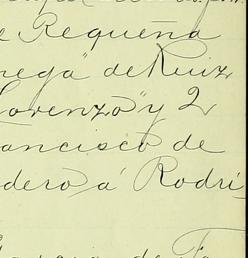 Requeña
rega" de Ruiz
Lorenzo" y 2
ancisco de
dero á Rodri
de